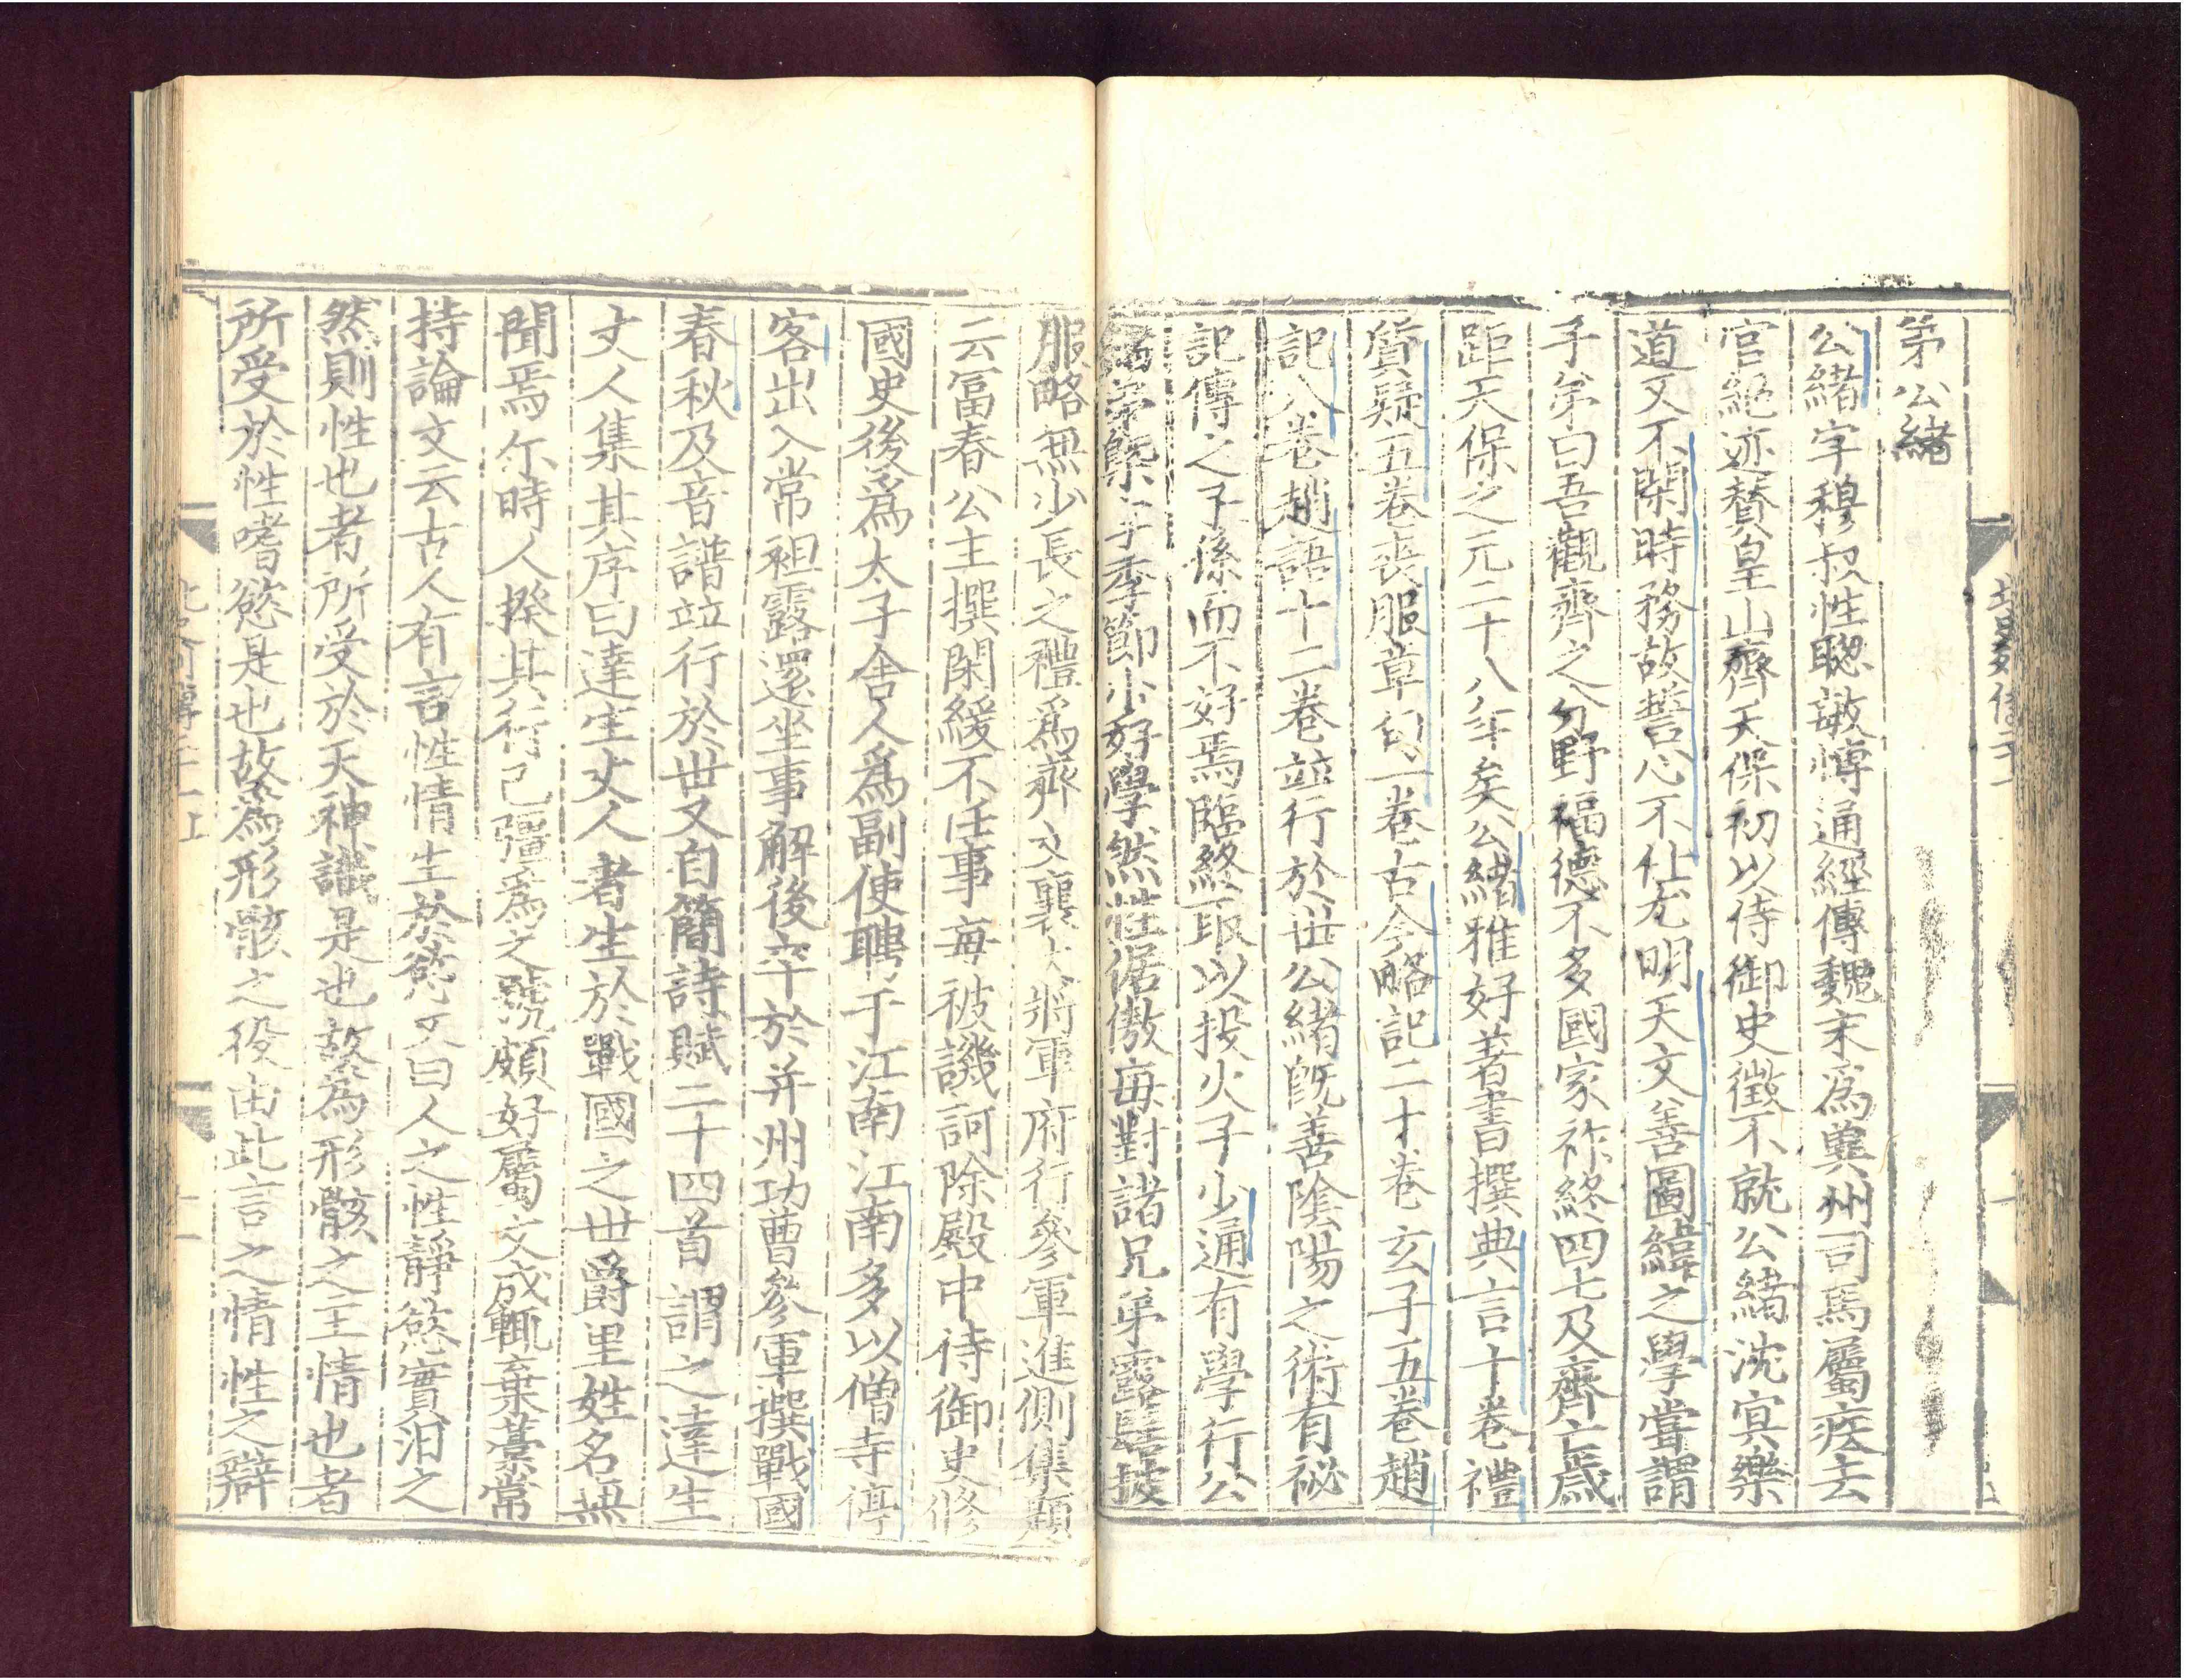 弟公緒
公緒字穆叔性聦敏愽通經傳魏末爲兾州司馬屬疾去
官絶迹賛皇山齊天保初以侍御史徵不就公緒沈㝠樂
道又不閑時務故誓心不仕尤明天文善圖緯之學嘗謂
子弟曰吾觀齊之分野福德不多國家祚終四七及齊亡歳
距天保之元二十八年矣公緒雅好著書撰典言十卷禮
質疑五卷喪服章句一卷古今略記二十卷玄子五卷趙
記八卷趙語十二卷並行於世公緒旣善隂陽之術有祕
記傳之子孫而不好焉臨終取以投火子少通有學行公
緒弟槩字季節少好學然性倨傲毎對諸兄弟露髻披
服略無少長之禮爲齊文襄大將軍府行參軍進側集題
云富春公主撰閑緩不任事每被譏訶除殿中侍御史修
國史後爲太子舍人爲副使聘于江南江南多以僧寺停
客出入常袒露還坐事解後卒於并州功曹參軍撰戰國
春秋及音譜竝行於世又自簡詩賦二十四首謂之達生
丈人集其序曰達生丈人者生於戰國之世爵里姓名無
聞焉尓時人揆其行己彊爲之號頗好屬文成輒棄藁常
持論文云古人有言性情生於慾又曰人之性靜慾實汩之
然則性也者所受於天神識是也故爲形骸之主情也者
所受於性嗜慾是也故爲形骸之役由此言之情性之辯